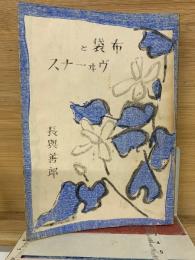 布袋と
ヴヰーナス
長與善郎